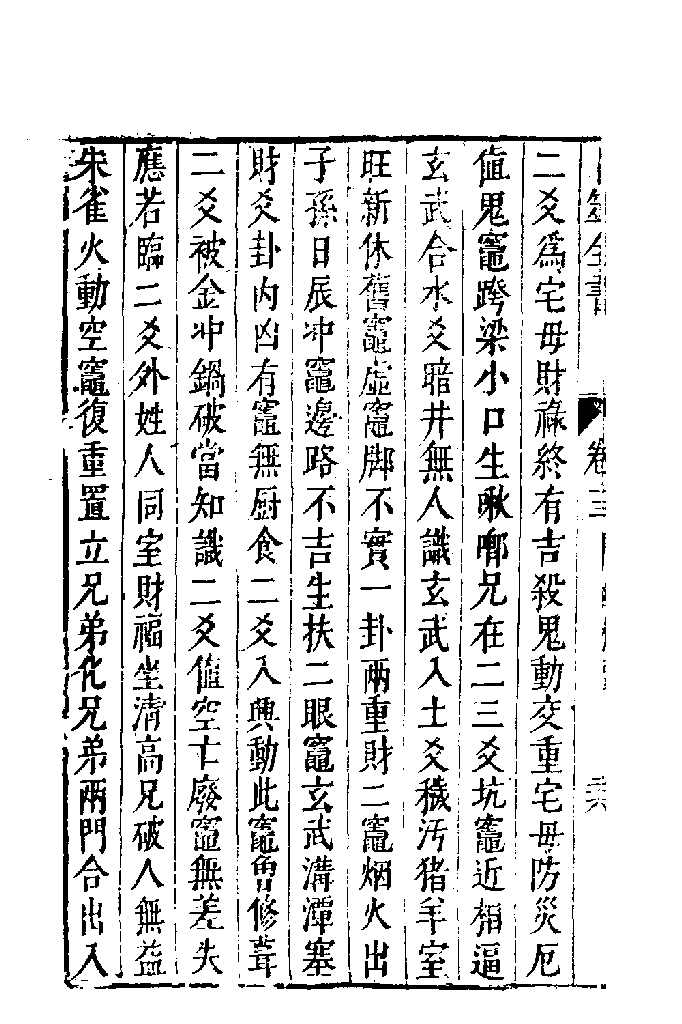 全書 卷三
二爻為宅母財祿終有吉殺鬼動交重宅母防災厄
值鬼竈跨梁小口生啾唧兄在二三爻坑竈近相逼
玄武合水爻暗井無人識玄武入土爻穢污猪羊室
旺新休舊竈虛竈脚不實一卦兩重財二竈烟火出
子孫日辰冲竈邊路不吉生扶二眼竈玄武溝潭塞
財爻卦內凶有竈無厨食二爻入興動此竈曾修葺
二爻被金冲鍋破當知識二爻值空亡廢竈無差失
應若臨二爻外姓人同室財福坐清高兄破人無益
朱雀火動空竈復重置立兄弟化兄弟兩門合出入